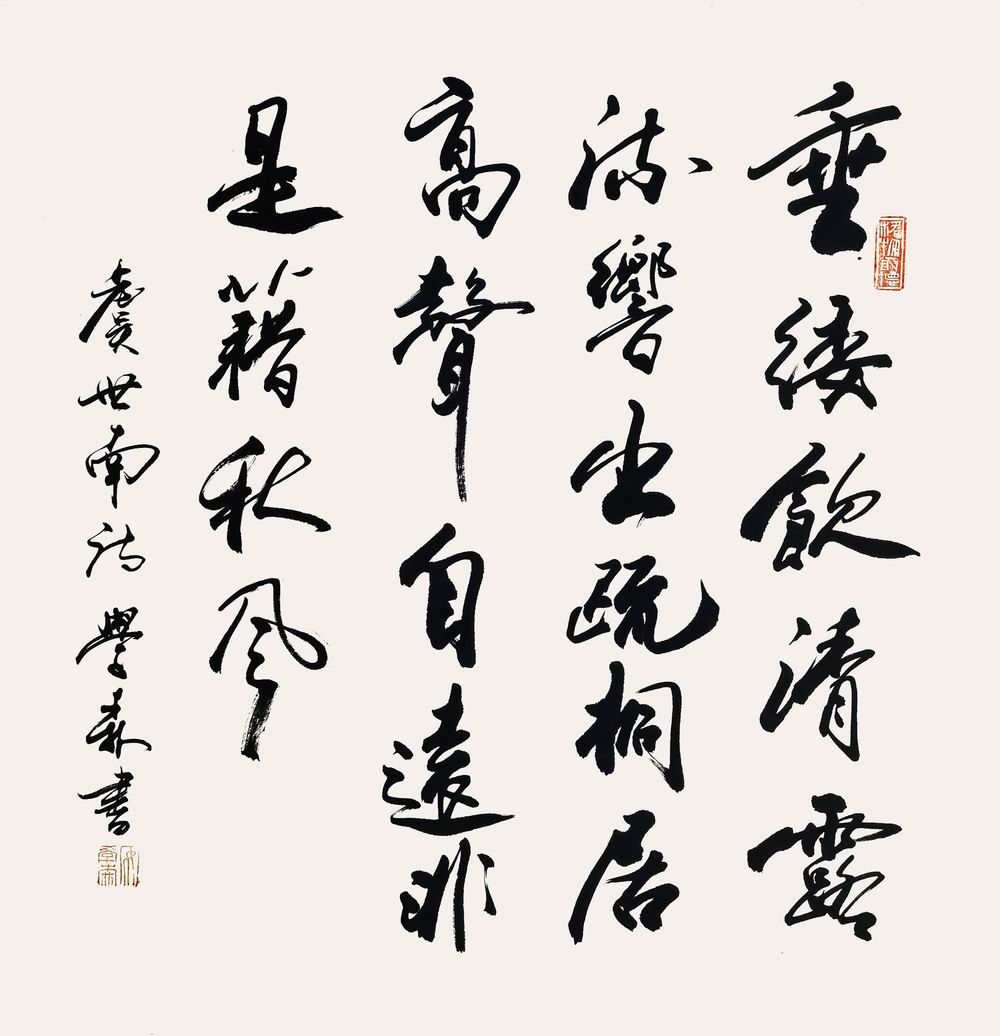 垂緌飲清露
流響出疏桐居
高聲自遠非
是籍秋風
虞世南詩 學森書